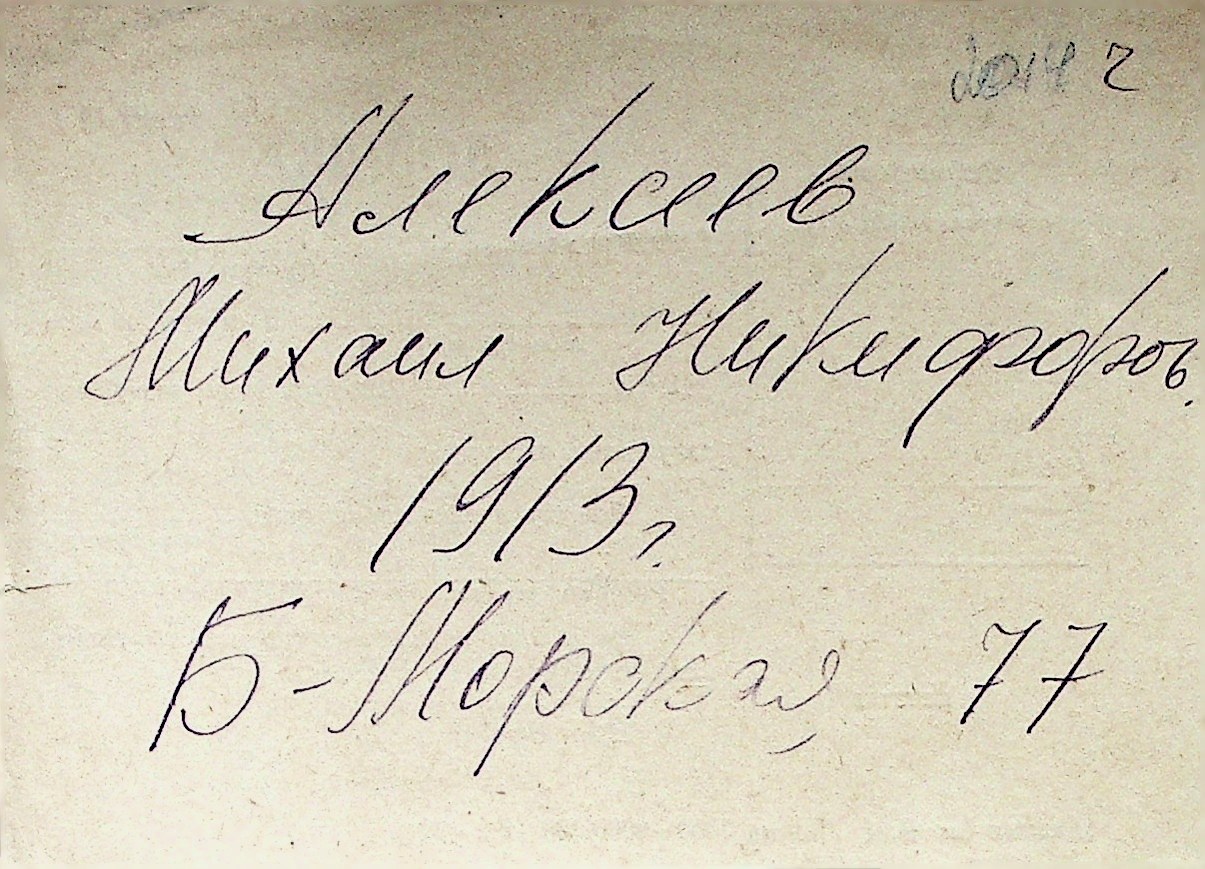 2014 г
Алексеев
Михаил Никифоров.
1913г.
Б-Морская, 77